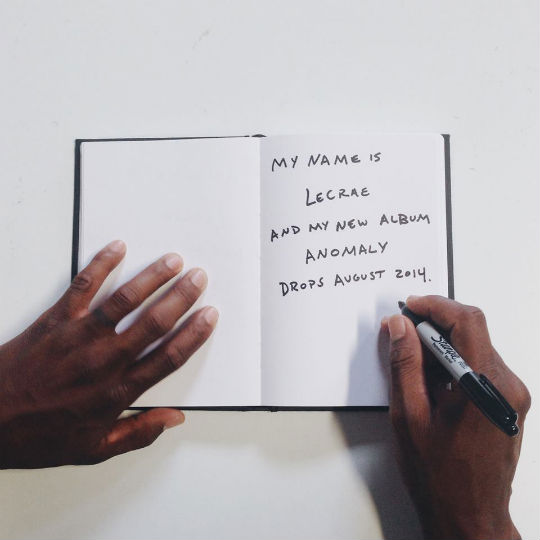 MY NAME IS
LECRAE
AND MY NEW ALBUM
ANOMALY
DROPS AUGUST 2014.
Sharpie